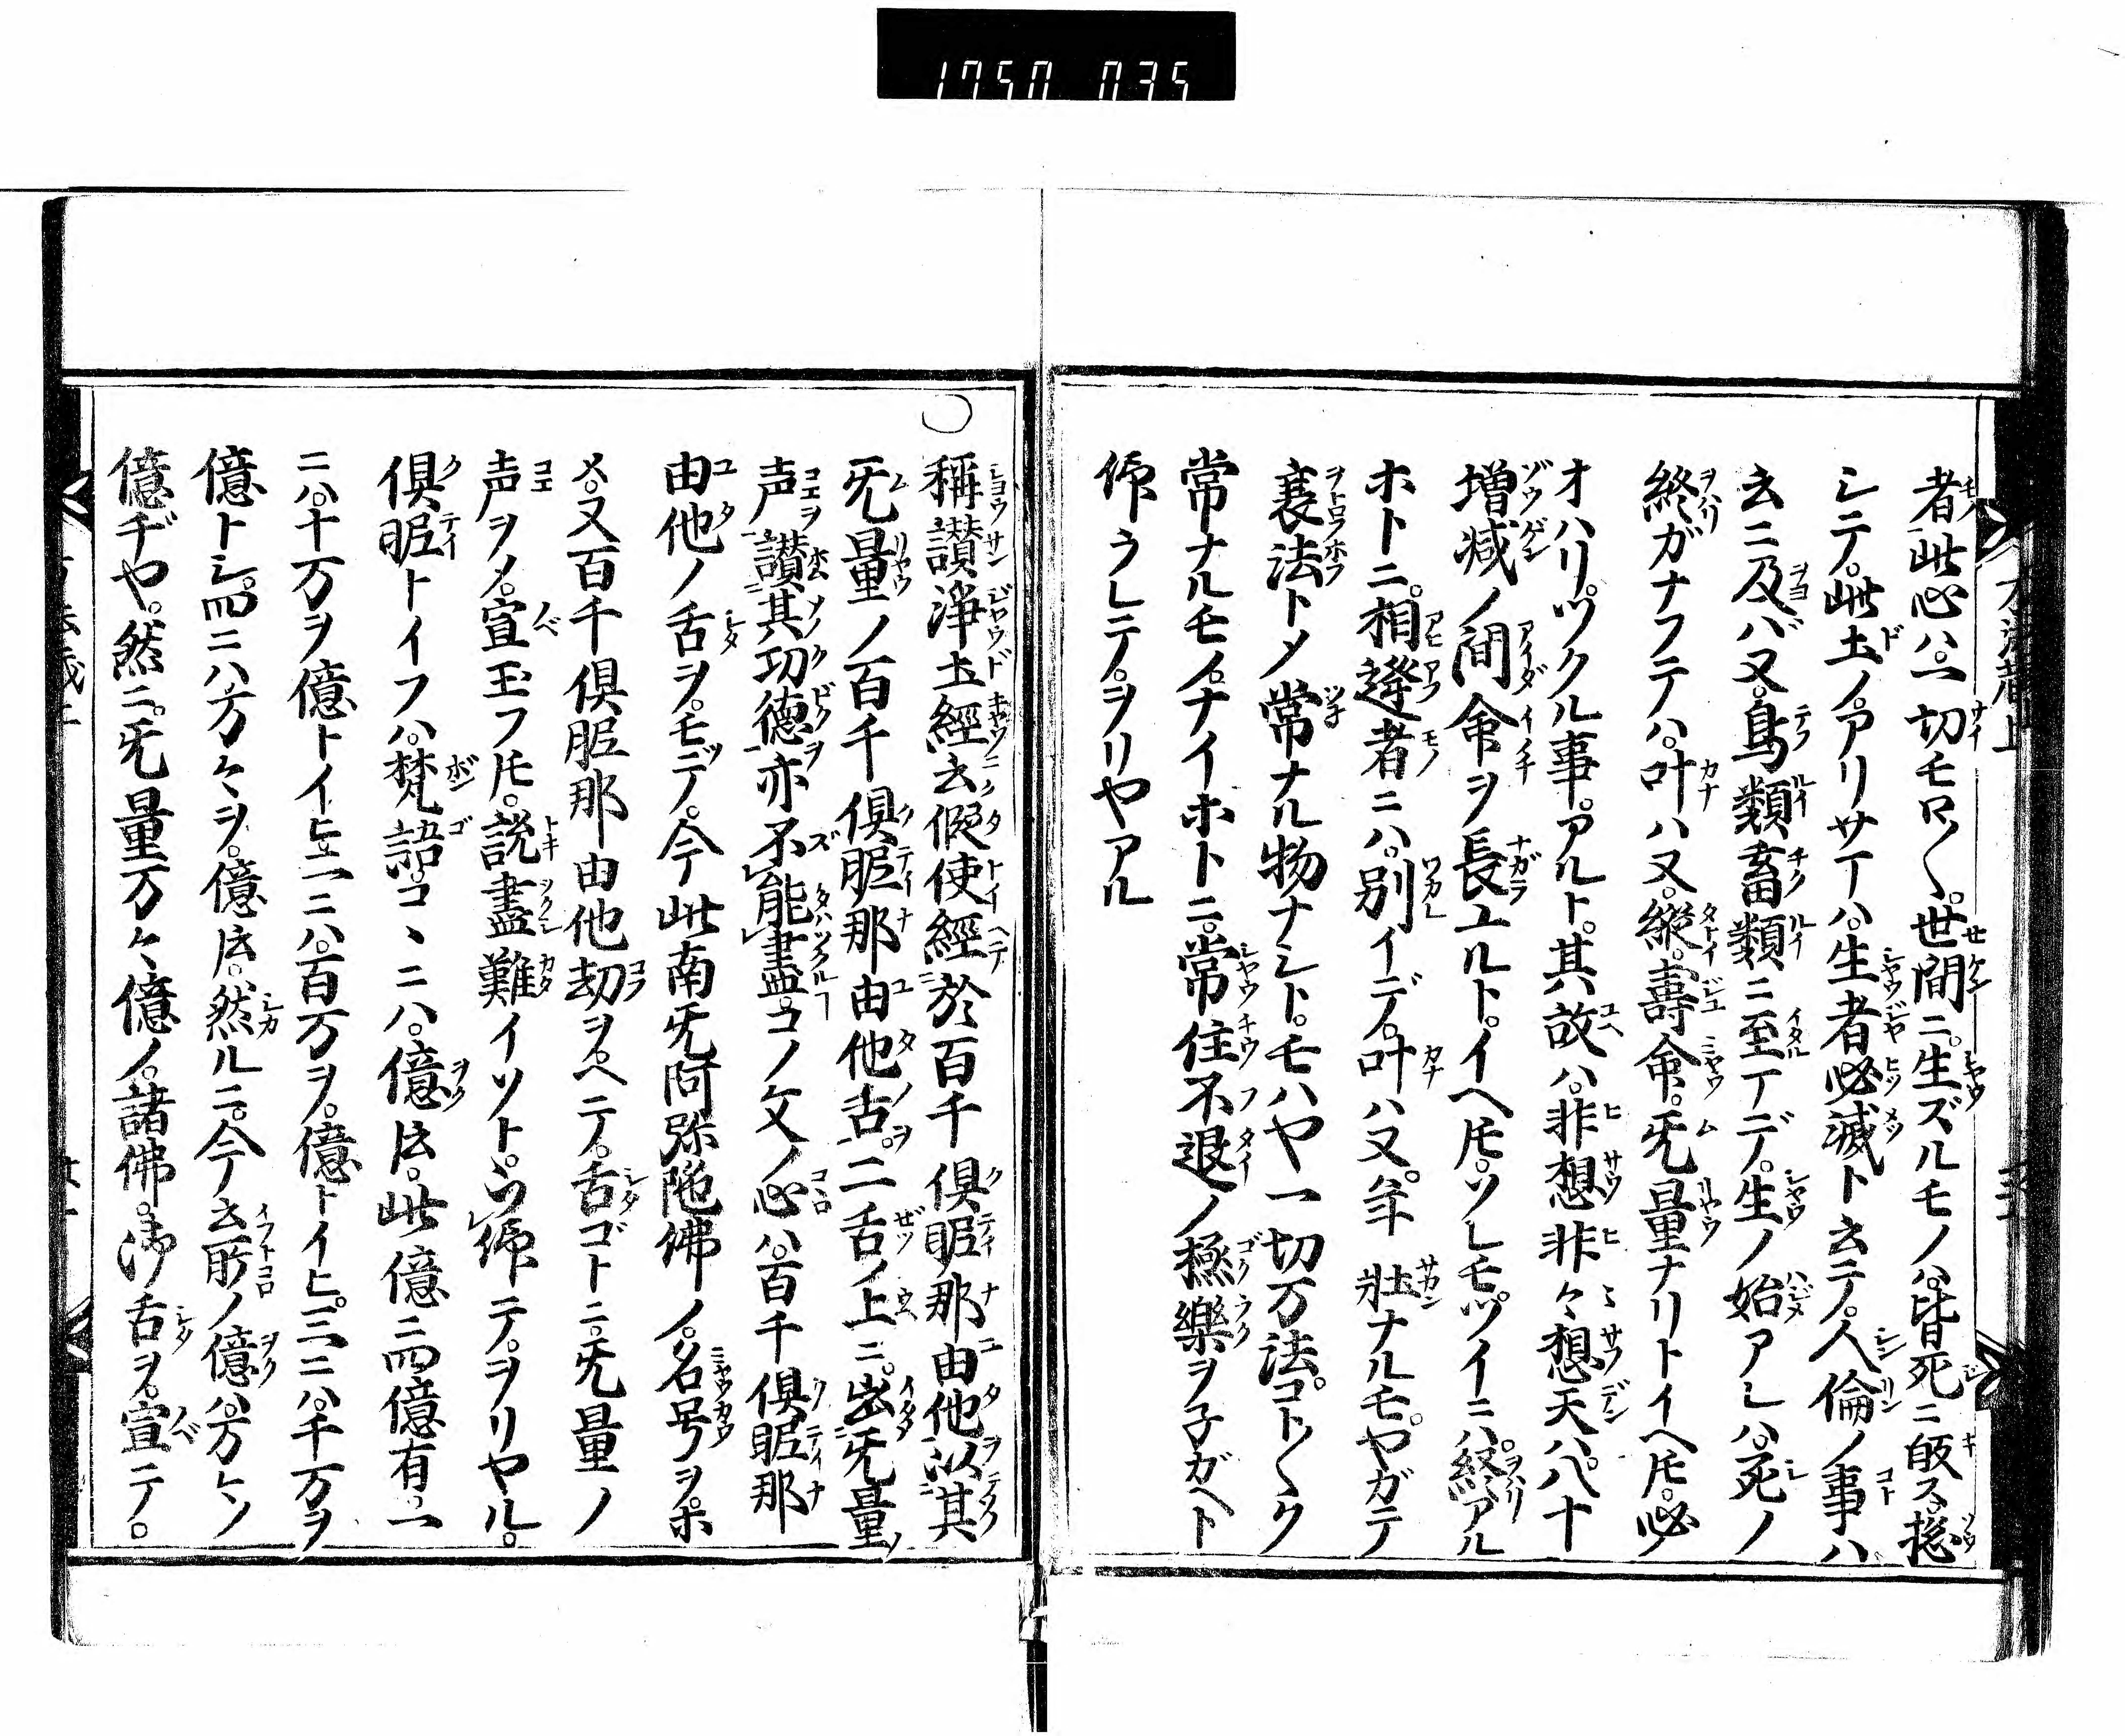 1750 035
者此心ハ。一切モロ〱。世間ニ。生ズルモノハ。皆死ニ皈ス。捴
シテ。此土ノ。アリサマハ。生者必滅ト云テ。人倫ノ事ハ
云ニ及バ又。鳥類畜類ニ至マデ。生ノ始アレハ。死ノ
終ガナフテハ。叶ハ又。縱。壽命。旡量ナリトイヘ𪜈。必
オハリ。ツクル事。アルト。其故ハ。非想非々想天八。八十
増减ノ間命ヲ長エルト。イヘ𪜈。ソレモ。ツイニハ。終アル
ホトニ。相逢者ニハ。別イデ。叶ハ又。年壯ナルモ。ヤガテ
衰法トメ常ナル物ナシト。モハヤ一切万法。コト〱ク
常ナルモノ。ナイホトニ。常住不退ノ極樂ヲ子ガヘト
仰ラレテ。ヲリヤアル
稱讃淨土經云假使經於百千俱胝那由他以其
旡量ノ百千俱胝那由他舌。二舌ノ上ニ。出旡量ノ
声讃其功德亦不能盡。コノ文ノ心ハ。百千俱胝那
由他ノ舌ヲ。モツデ。今此南旡阿弥陀佛ノ。名号ヲ。ホ
メ。又百千俱胝那由他劫ヲ。ヘテ。舌ゴトニ。旡量ノ
声ヲメ。宣玉フ𪜈。說盡難イソト。ヲ仰テ。ヲリヤル。
俱胝トイフハ。梵語。コヽニハ。億𪜈。此億ニ四億有。一
ニハ。十万ヲ億トイヒ。二ニハ。百万ヲ。億トイヒ。三ニハ。千万ヲ
億トシ。四ニハ万々ヲ。億𪜈。然ルニ。今云所ノ億ハ。万々ノ
億ヂヤ。然ニ。旡量万々億ノ。諸佛。御舌ヲ。宣テ。